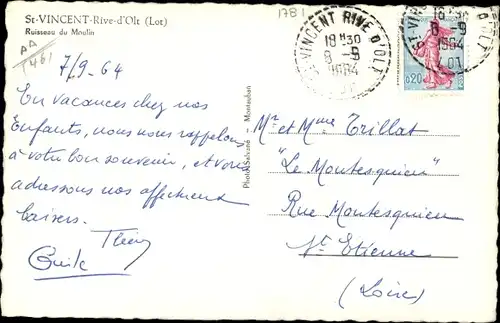 St-VINCENT-Rive-d'Olt (Lot)
Ruisseau du Moulin
AA
1461
1781
7/9-64
En vacances chez nos
Enfants, nous nous rappelons
à votre bon souvenir, et vous
adressons nos affectueux
baisers.
Photo Salvané - Montauban
ST-VINCENT RIVE D'OLT
18H30
8-9
1964
LOT
ST-VIN
18 30
8-9
1964
LOT
0,20
Mr et Mme Trillat
"Le Montesquieu"
Rue Montesquieu
St Etienne
(Loire)